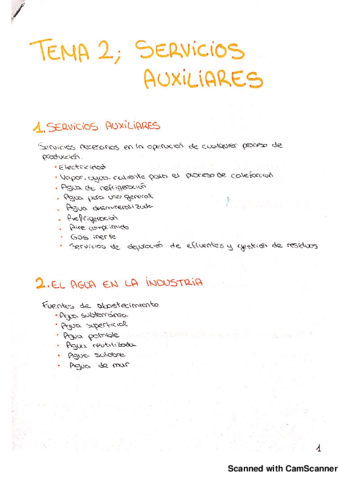 TEMA 2; SERVICIOS
AUXILIARES
1. SERVICIOS AUXILIARES
Servicios necesarios en la operación de cualquier proceso de
producción.
· Electricidad
· Vapor, agua caliente para el proceso de calefacción
· Agua de refrigeración
· Agua para uso general
· Agua desmineralizada
· Refrigeración
· Aire comprimido
· Gas inerte
· Servicios de depuración de efluentes y gestión de residuos
2. EL AGUA EN LA INDUSTRIA
Fuentes de abastecimiento
· Agua subterránea
· Agua superficial
· Agua potable
· Agua reutilizada
· Agua salobre
· Agua de mar
1
Scanned with CamScanner